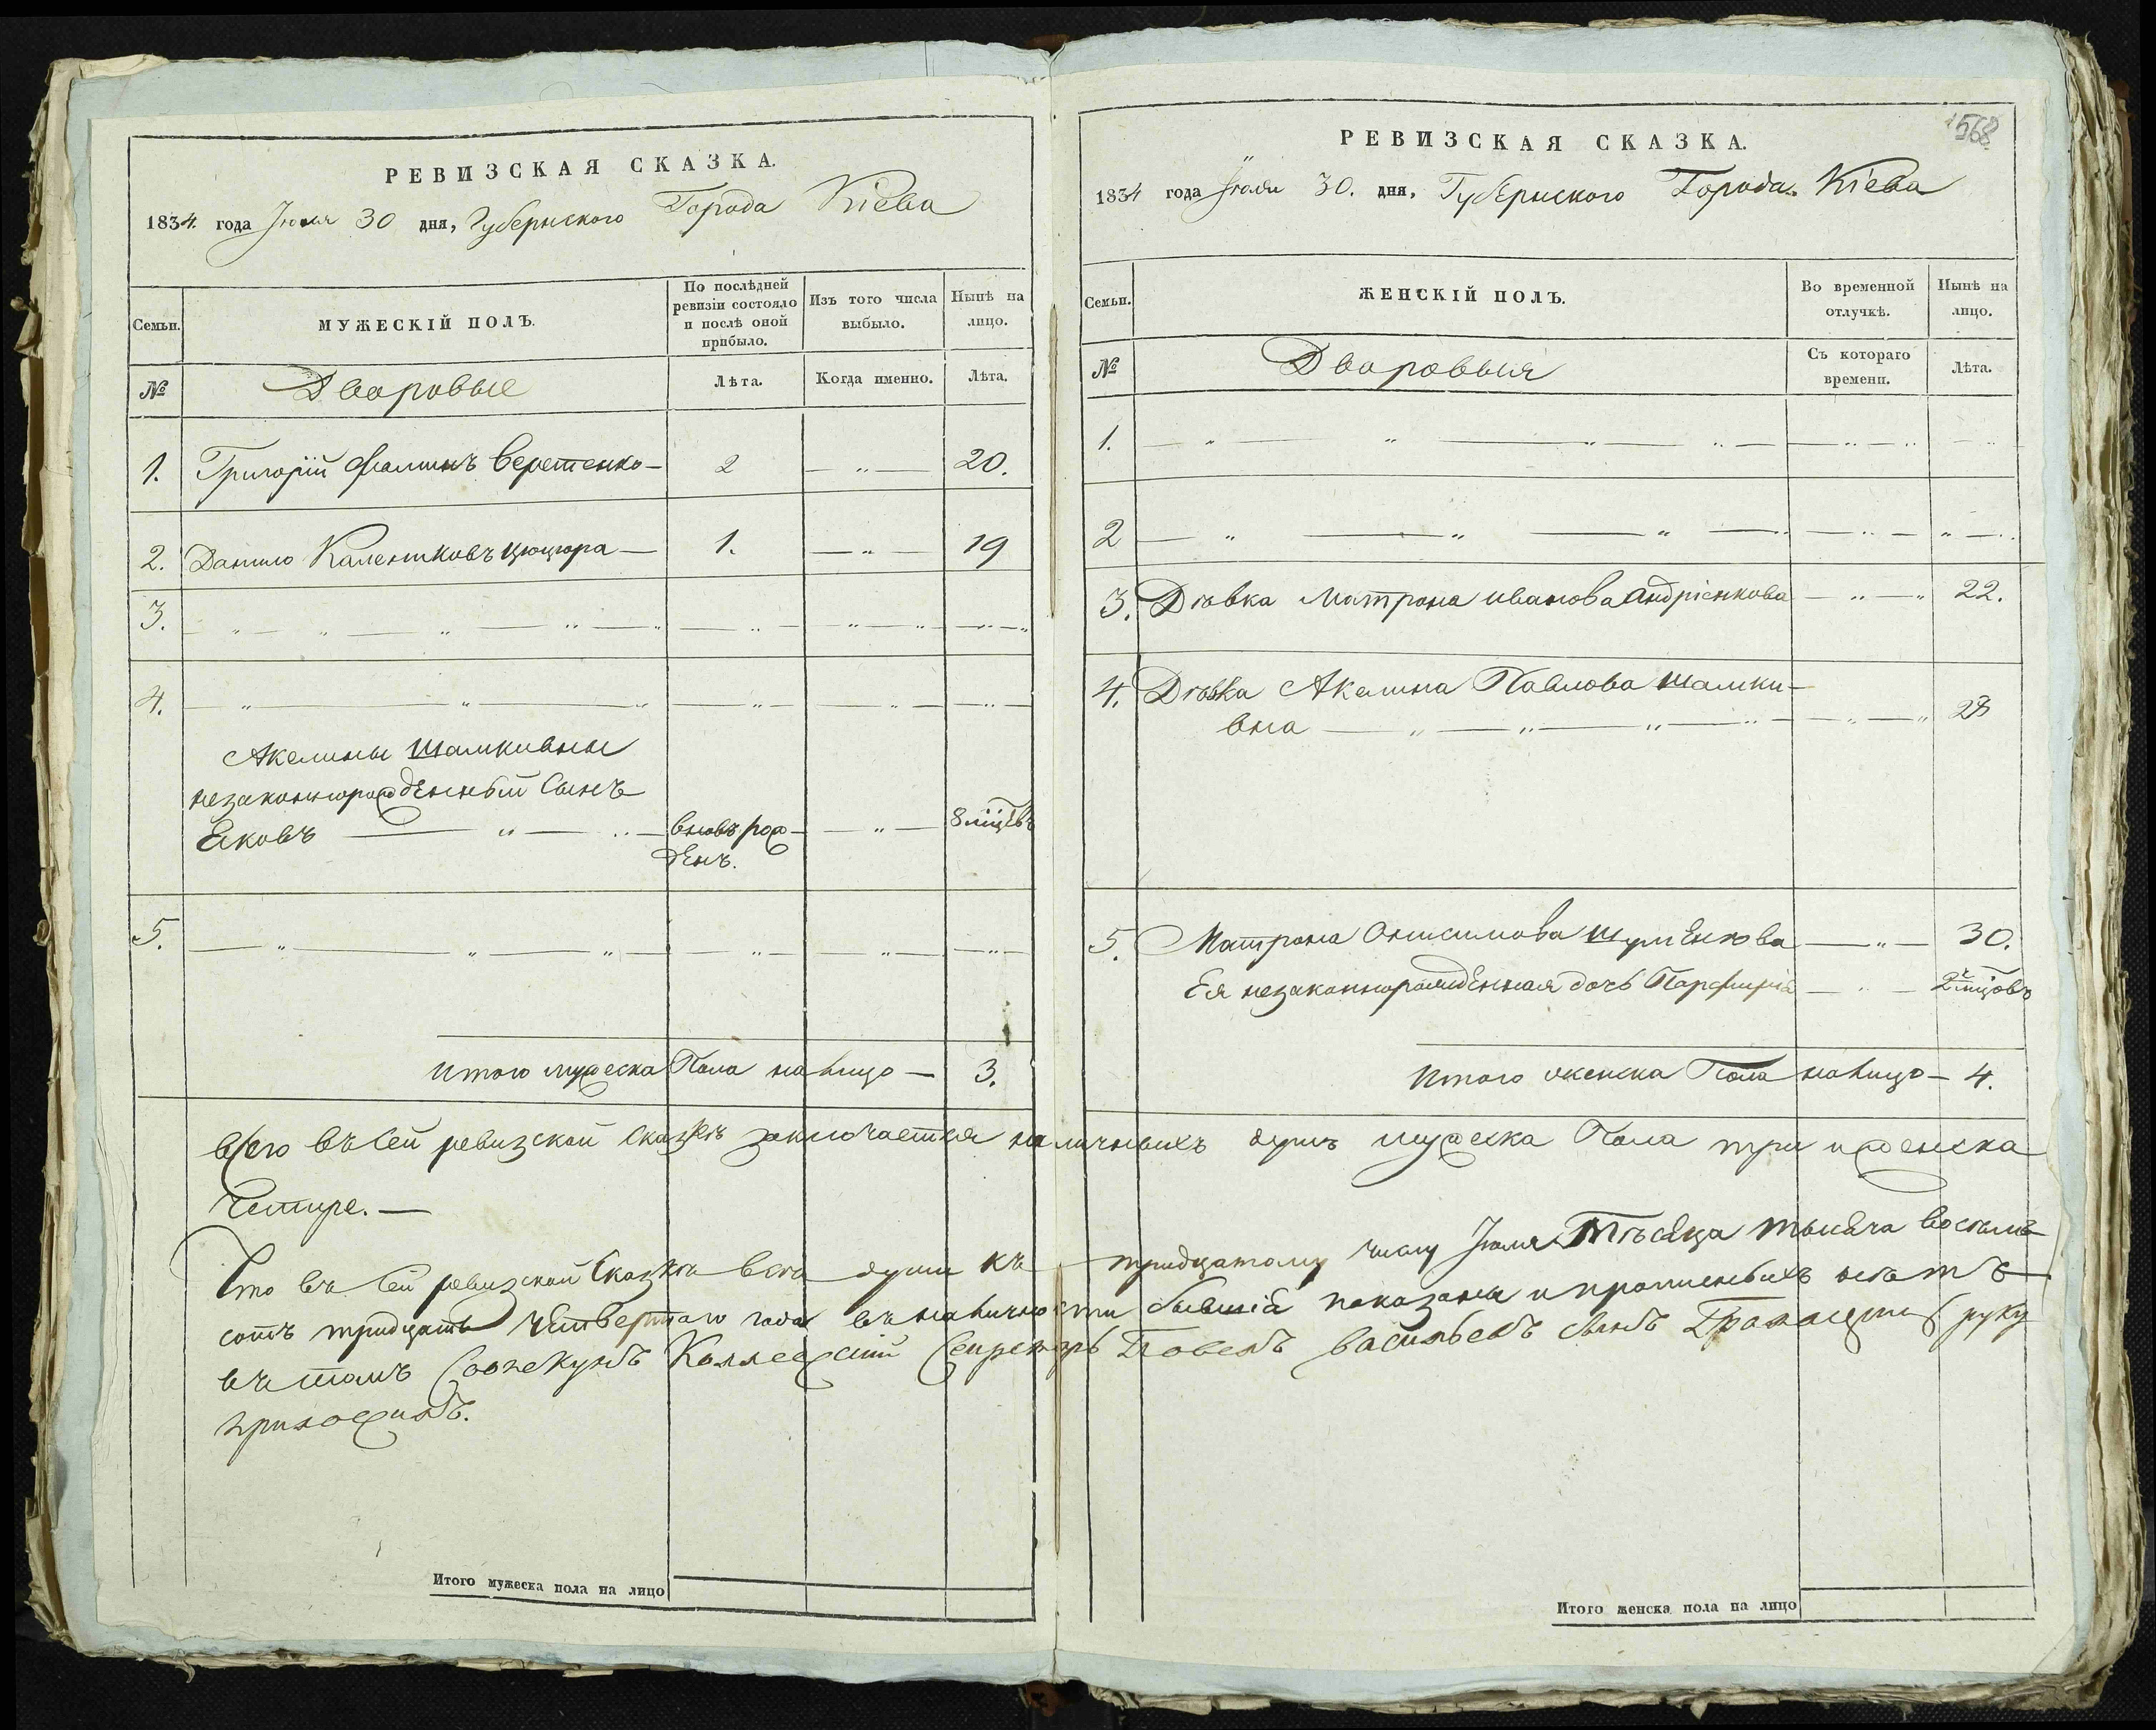 РЕВИЗСКАЯ СКАЗКА.
1834. года Июля 30 дня, Губернского Города Кіева
Семьи.
МУЖЕСКІЙ ПОЛЪ.
По послѣдней ревизіи состояло и послѣ оной прибыло.
Изъ того числа выбыло.
Нынѣ на лицо.
№
Дворовые
Лѣта.
Когда именно.
Лѣта.
1. Григорій Фоминъ Веретенко — 2 — „ — 20.
2. Данило Калениковъ Цюцюра — 1. — „ 19
3. — „ — „ — „ — „ — „
4. — „ — „ — „
Акелины Шамкивны
незаконнорожденный Сынъ
Яковъ — „ — вновь рож- — „ — 8 мцѣвъ
денъ.
5. — „ — „ — „ —
Итого мужеска Пола на лицо — 3.
РЕВИЗСКАЯ СКАЗКА.
568
1834 года Июля 30. дня, Губернского Города Кіева
Семьи.
ЖЕНСКІЙ ПОЛЪ.
Во временной отлучкѣ.
Нынѣ на лицо.
№
Дворовыя
Съ котораго времени.
Лѣта.
1. — „ — „ — „ — „ —
2 — „ — „ — „ —
3. Дѣвка Матрона Иванова Андріенкова — „ — „ 22.
4. Дѣвка Акелина Павлова Шамки-
вна — „ — „ — „ — 28
5. Матрона Онисимова Шуменкова — „ — 30.
Ея незаконнорожденная дочь Парфирія — „ — 2 мцовъ
Итого женска Пола на лицо — 4.
Всего въ сей ревизской сказке заключается наличныхъ душъ мужеска Пола три и женска
Четыре. —
Что въ сей ревизской Сказкѣ всѣ души къ тридцатому числу Июля Мѣсяца тысяча восемь
сотъ тридцать четвертаго года въ наличности бывшіа показаны и прописныхъ нетъ
въ томъ Соопекунъ Коллежскій Секретарь Павелъ Васильевъ сынъ руку
приложилъ.
Итого мужеска пола на лицо
Итого женска пола на лицо